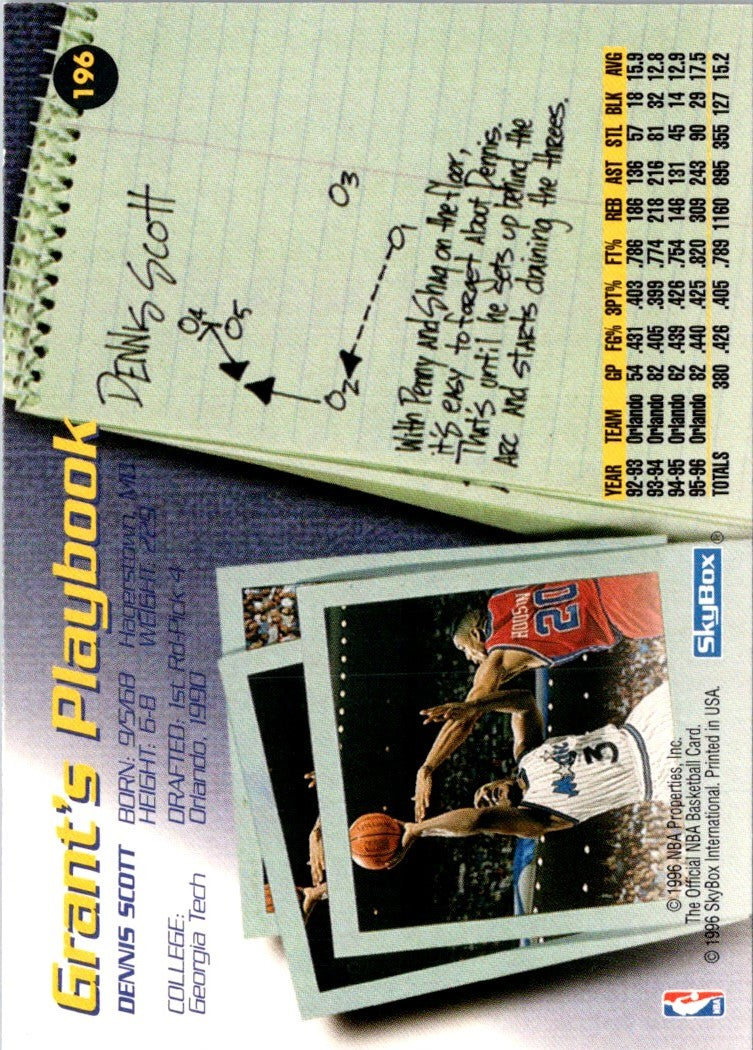 Grant's Playbook
196
DENNIS SCOTT
BORN: 9/5/68 Hagerstown, MD
HEIGHT: 6-8 WEIGHT: 229
COLLEGE:
Georgia Tech
DRAFTED: 1st Rd-Pick 4
Orlando, 1990
DENNIS SCOTT
O4
O5
O3
O2
O1
With Penny and Shaq on the floor,
it's easy to forget about Dennis.
That's until he sets up behind the
arc and starts draining the threes.
HOUSTON
20
MAGIC
3
YEAR TEAM GP FG% 3PT% FT% REB AST STL BLK AVG
92-93 Orlando 54 .431 .403 .786 186 136 57 18 15.9
93-94 Orlando 82 .405 .399 .774 218 216 81 32 12.8
94-95 Orlando 62 .439 .426 .754 146 131 45 14 12.9
95-96 Orlando 82 .440 .425 .820 309 243 90 29 17.5
TOTALS 380 .426 .405 .789 1160 895 355 127 15.2
© 1996 NBA Properties, Inc.
The Official NBA Basketball Card.
© 1996 SkyBox International. Printed in USA.
SkyBox®
NBA